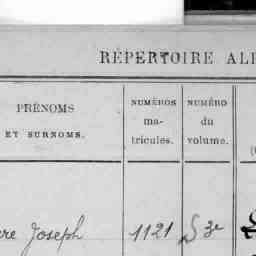 RÉPERTOIRE AL
PRÉNOMS
ET SURNOMS.
NUMÉROS
ma-
tricules.
NUMÉRO
du
volume.
re Joseph 1121 S 3e